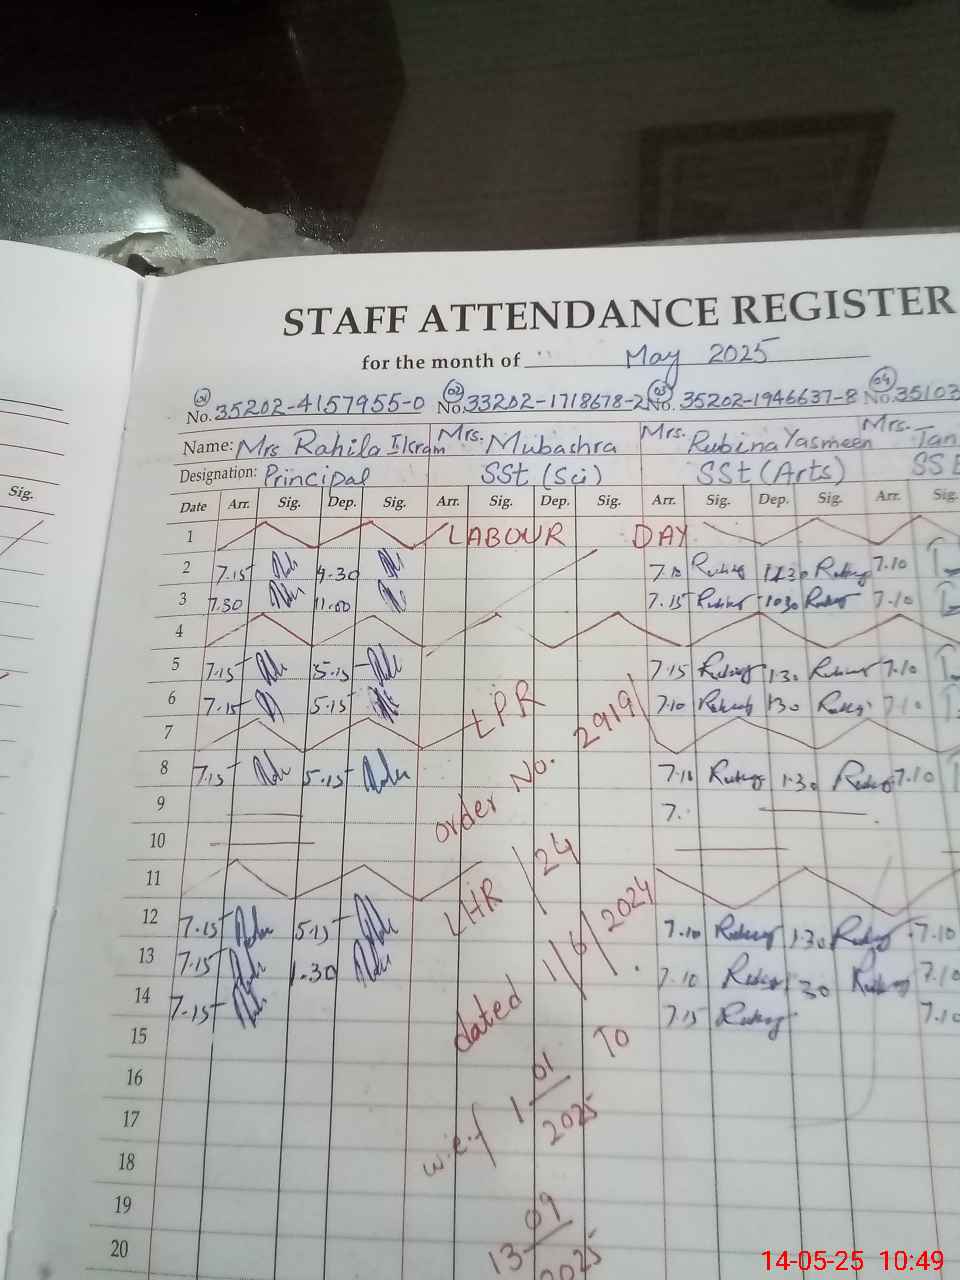 STAFF ATTENDANCE REGISTER
for the month of May 2025
01 02 03 04
No. 35202-4157955-0 No. 33202-1718678-2 No. 35202-1946637-8 No. 35103
Name: Mrs Rahila Ikram Mrs. Mubashra Mrs. Rubina Yasmeen Mrs. Tan
Designation: Principal SSt (Sci) SSt (Arts) SS
Sig.
Date Arr. Sig. Dep. Sig. Arr. Sig. Dep. Sig. Arr. Sig. Dep. Sig. Arr. Sig.
1 LABOUR DAY
2 7.15 4.30 7.10 11.30 7.10
3 7.30 11.00 7.15 1030 7.10
4
5 7.15 5.15 7.15 1.30 7.10
6 7.15 5.15 7.10 130 7.10
7 LPR
8 7.15 5.15 7.10 1.30 7.10
9 7.
10
11
12 7.15 5.15 7.10 1.30 7.10
13 7.15 1.30 7.10 30 7.10
14 7.15 7.15 7.10
15
16
17
18
19
20
order No. 2919/
LHR /24
dated 1/6/2024.
w.e.f 1 01/2025 To
13 09/2025
14-05-25 10:49